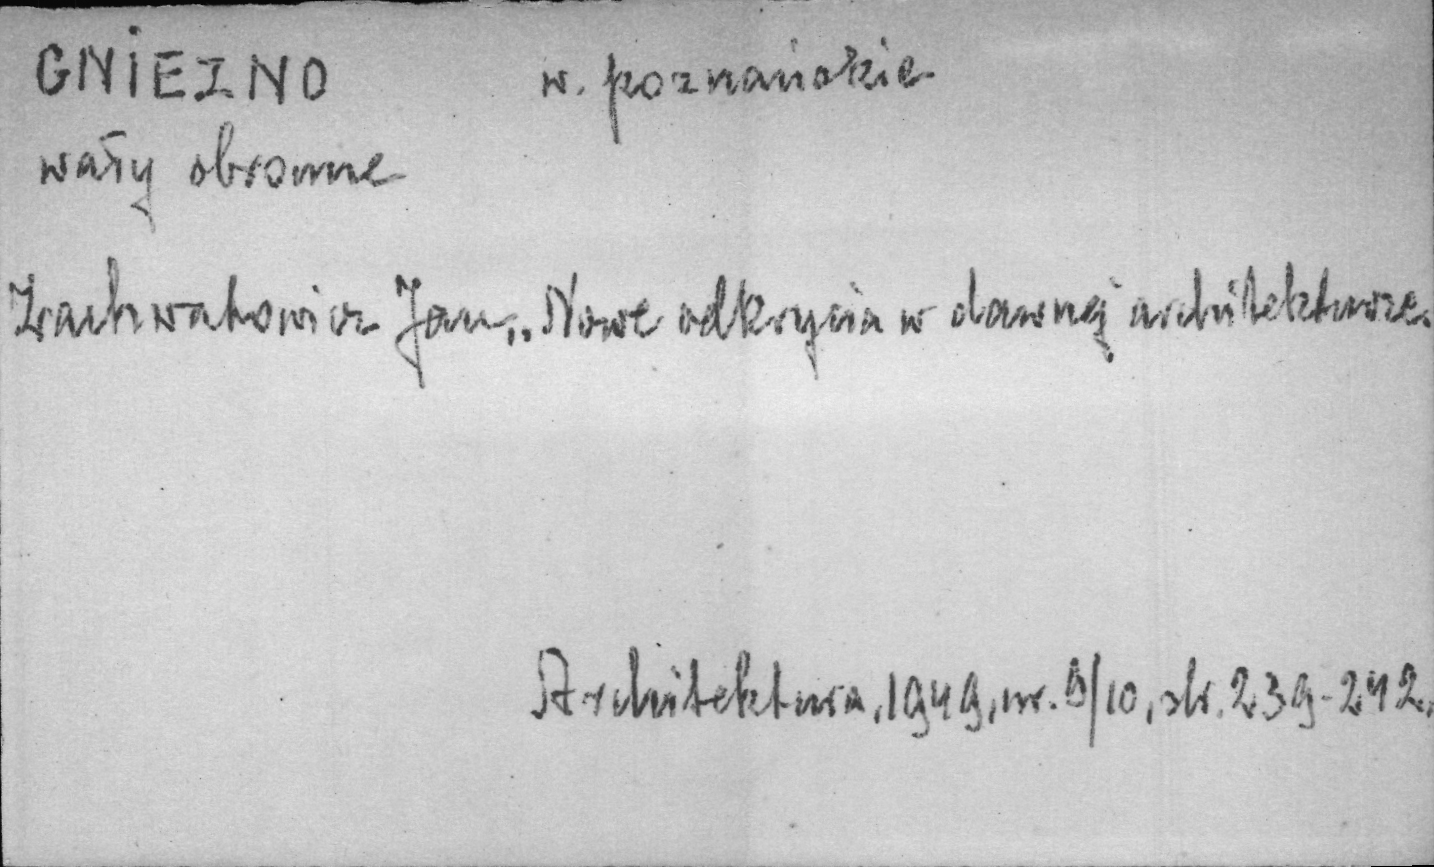 GNIEZNO w. poznańskie
wały obronne
Zachwatowicz Jan „Nowe odkrycia w dawnej architekturze.
Architektura, 1949, nr. 9/10, str. 239-242.